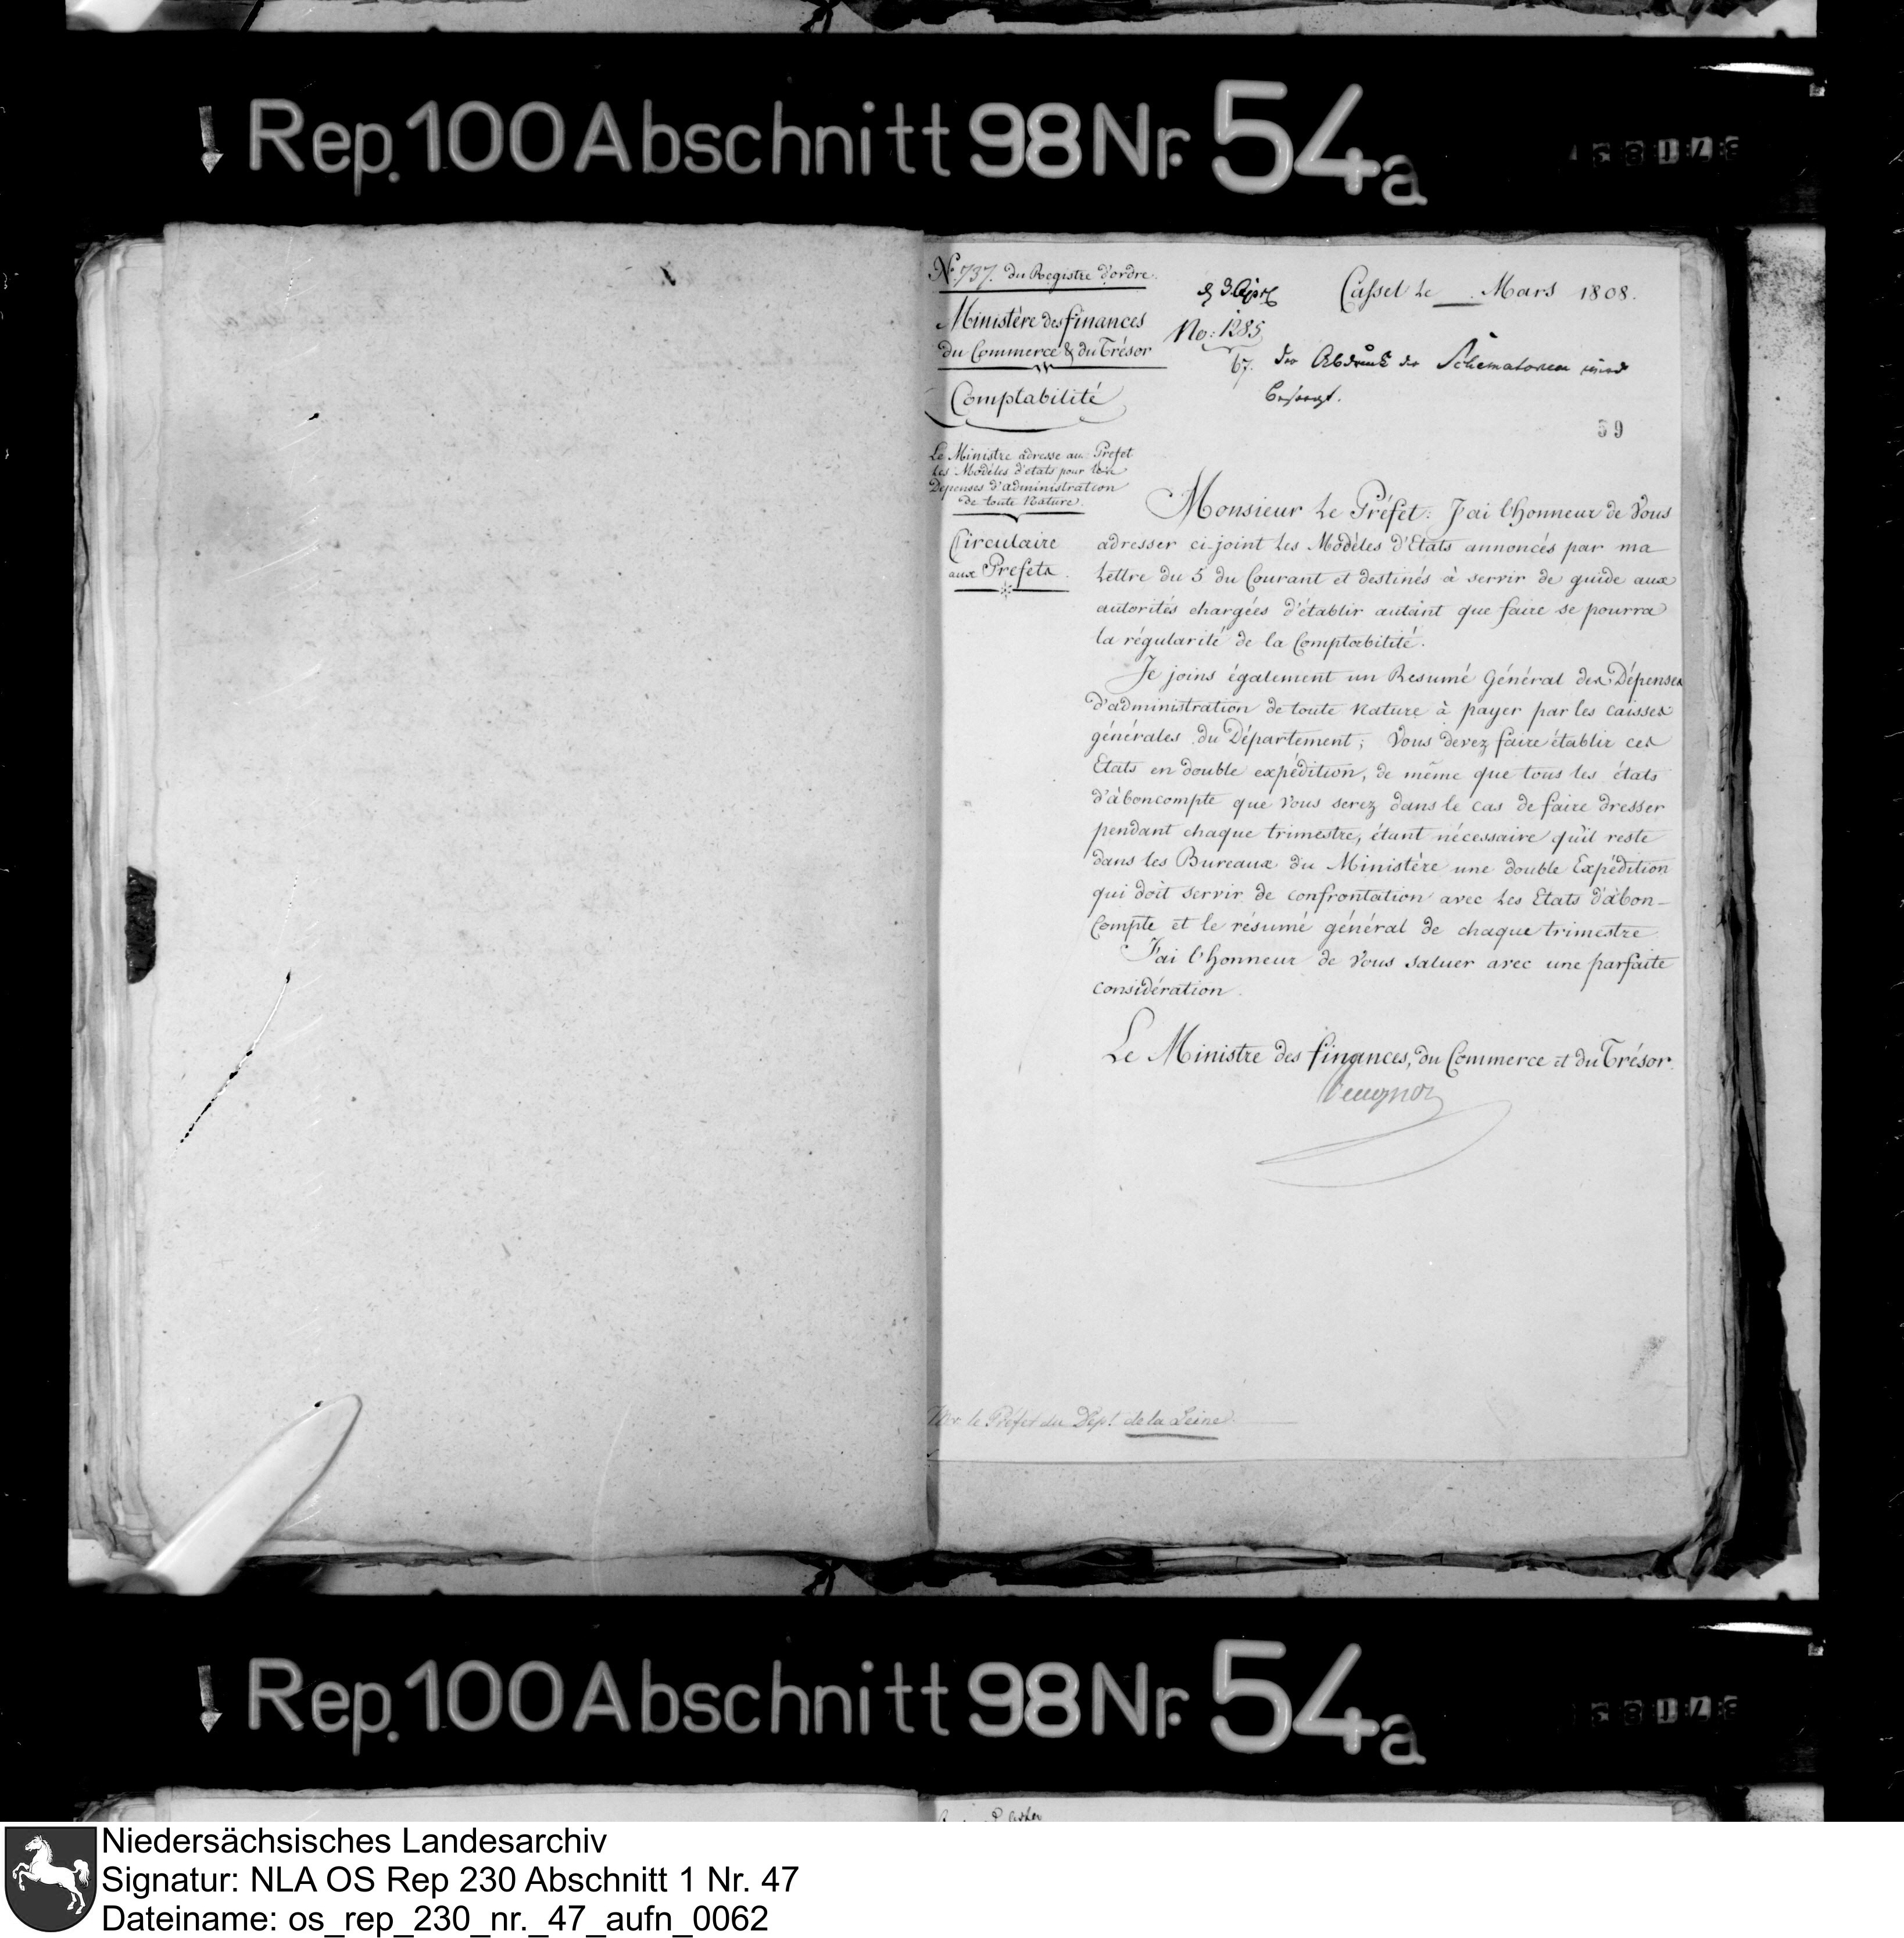 Rep. 100 Abschnitt 98 Nr. 54a
N.° 737. du Registre d'ordre.
Ministère des finances
du Commerce & du Trésor
Comptabilité
Le Ministre adresse au Préfet
les Modèles d'états pour les
Dépenses d'administration
de toute Nature.
Circulaire
aux Préfets.
3. Apr
No: 1285
Cassel le __ Mars 1808.
67. der Abdruck der Schematorum wird
besorgt.
59
Monsieur le Préfet. J'ai l'honneur de Vous
adresser ci-joint les Modèles d'Etats annoncés par ma
lettre du 5 du Courant et destinés à servir de guide aux
autorités chargées d'établir autant que faire se pourra
la régularité de la Comptabilité.
Je joins également un Resumé Général des Dépenses
d'administration de toute Nature à payer par les caisses
générales du Département; Vous devez faire établir ces
Etats en double expédition, de même que tous les états
d'àboncompte que Vous serez dans le cas de faire dresser
pendant chaque trimestre, étant nécessaire qu'il reste
dans les Bureaux du Ministère une double Expédition
qui doit servir de confrontation avec les Etats d'àbon-
Compte et le résumé général de chaque trimestre
J'ai l'honneur de Vous saluer avec une parfaite
considération.
Le Ministre des finances, du Commerce et du Trésor.
Beugnot
Mr. le Préfet du Dépt. de la Leine.
Rep. 100 Abschnitt 98 Nr. 54a
Niedersächsisches Landesarchiv
Signatur: NLA OS Rep 230 Abschnitt 1 Nr. 47
Dateiname: os_rep_230_nr._47_aufn_0062